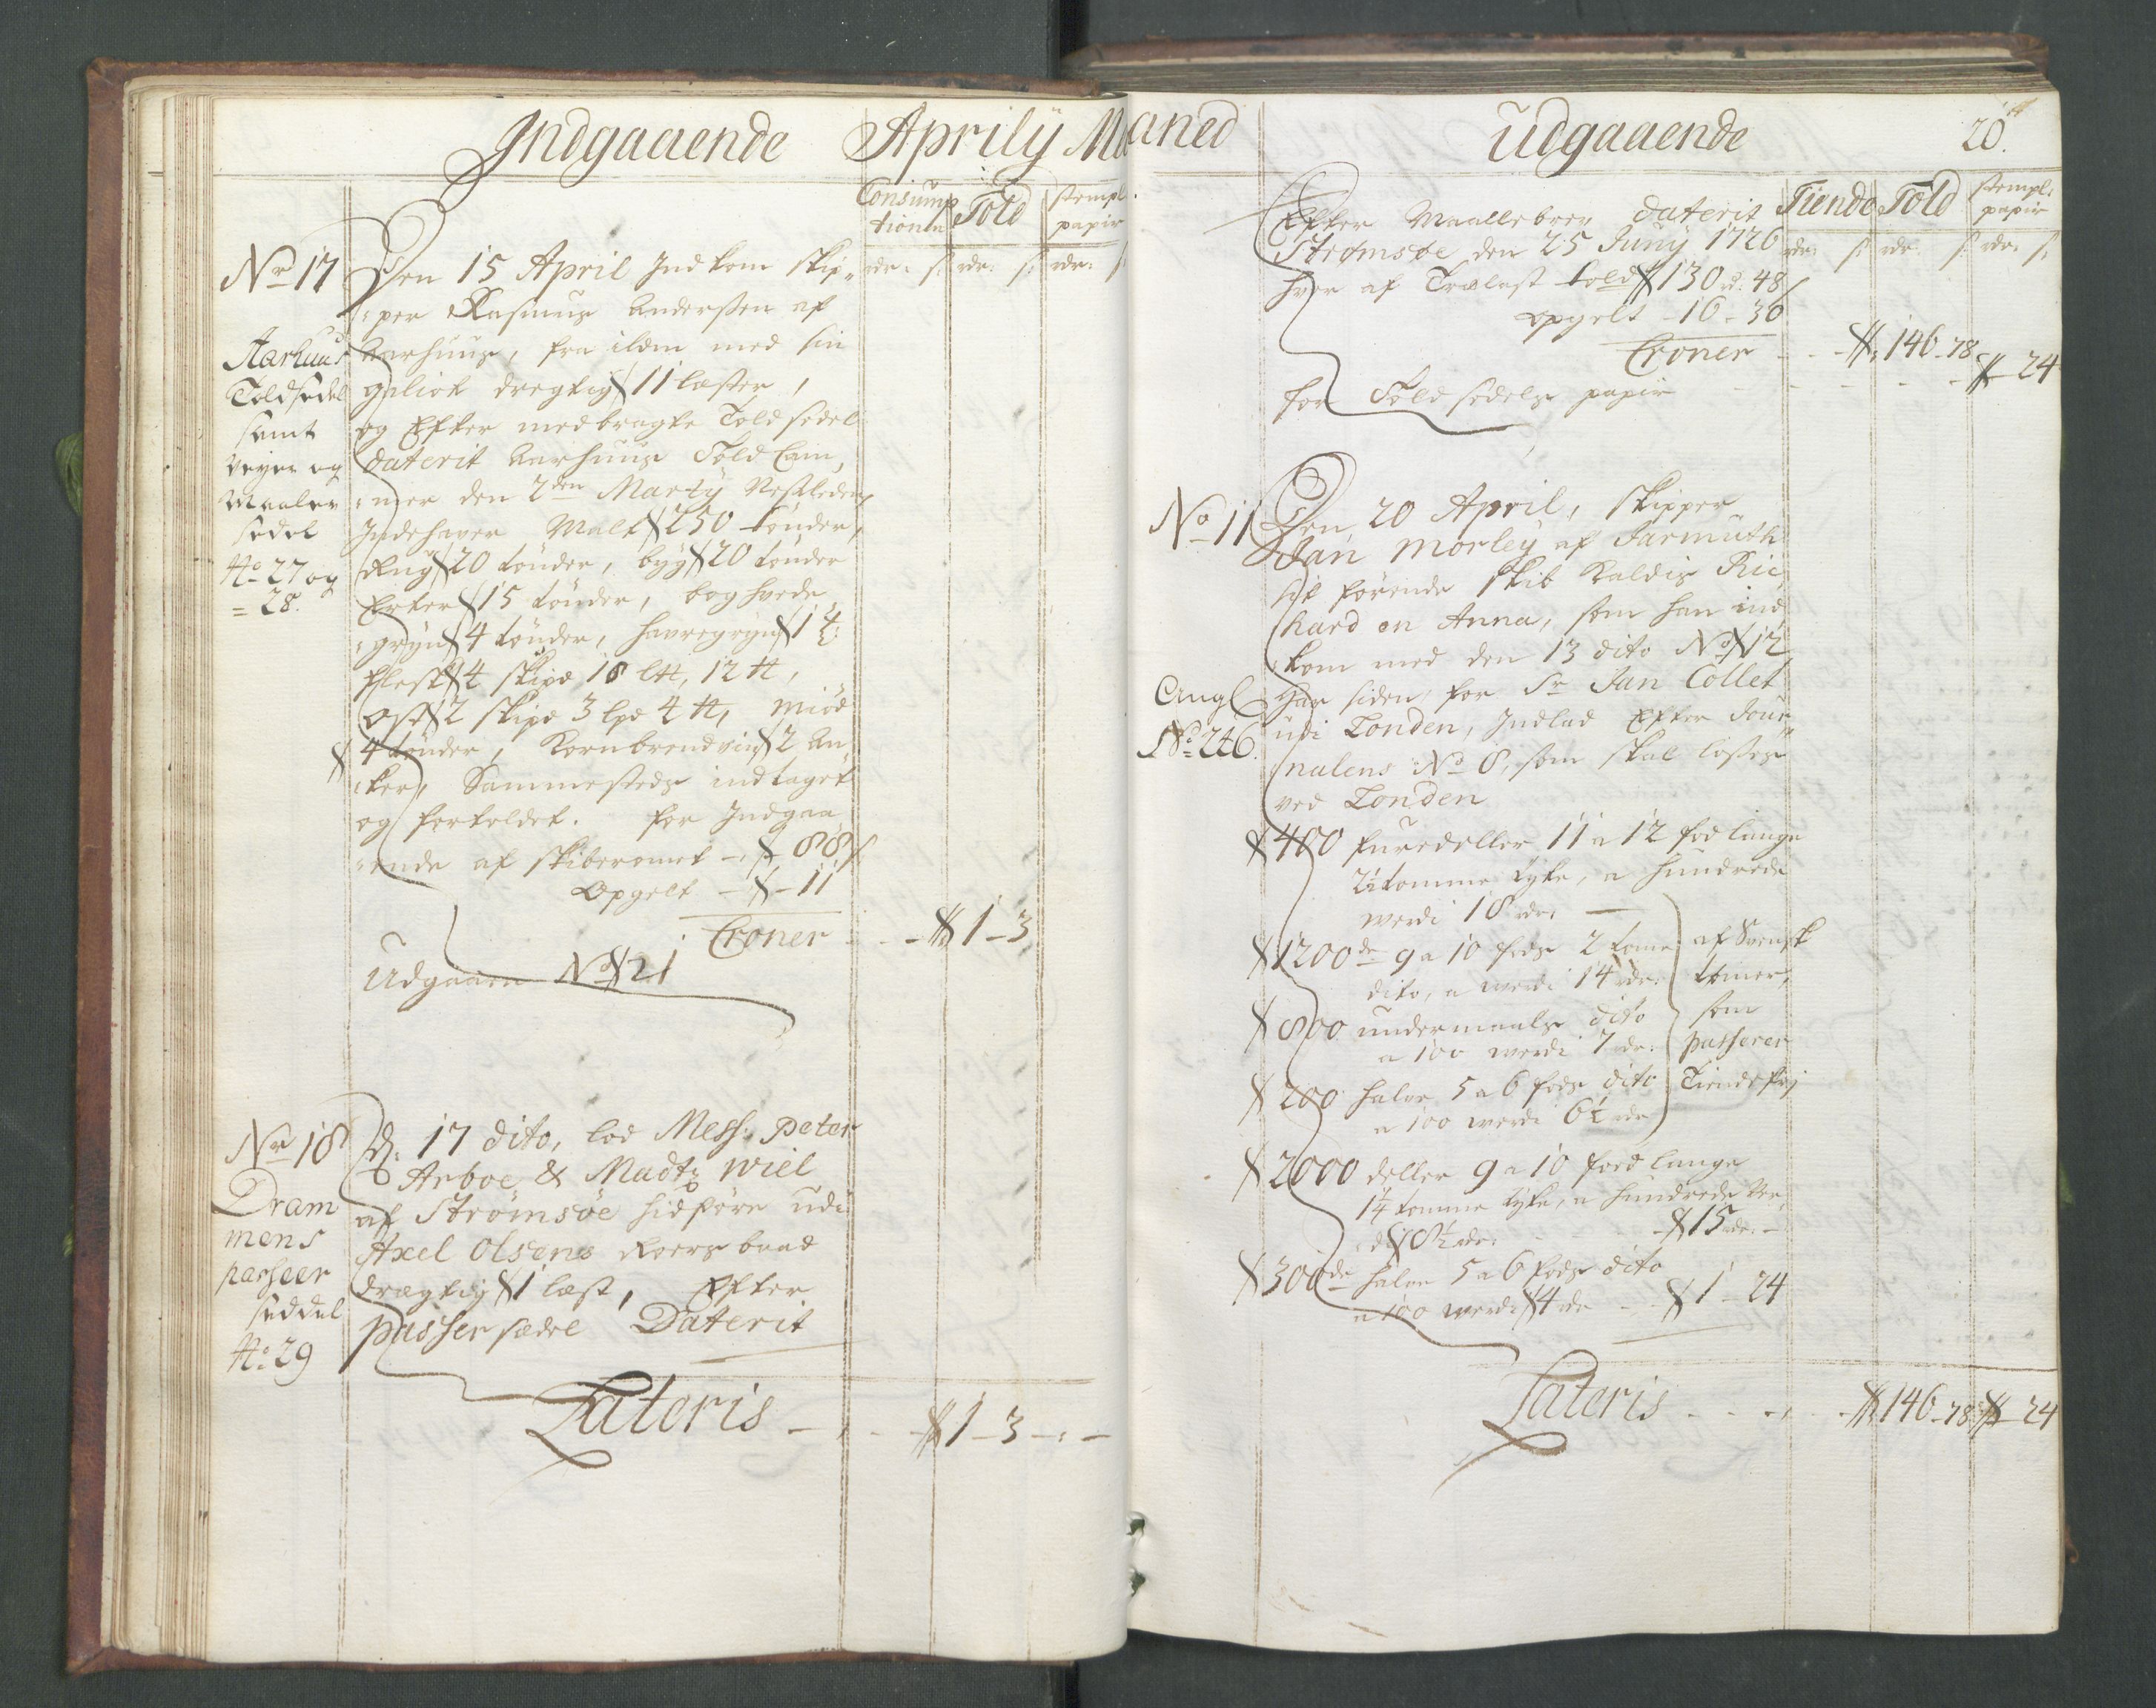 Indgaaende Aprily Maaned
Consump
tionen Told stempl:
papir
rdr: s: rdr: s: rdr: s:
No 17
Aarhuus
Toldsedel
samt
Veyer og
Maaler
sedel
No 27 og
= 28.
Den 15 April Indkom skip¬
per Rasmus Andersen af
Aarhuus, fra ildem med sin
galiot dregtig 11 læster,
og Efter medbragte Toldsedel
daterit Aarhuus Told Cam¬
mer den 2den Marty Nestleden
Indehaver Malt 250 tønder,
Rug 20 tønder, byg 20 tønder
Erter 15 tønder, boghvede
gryn 4 tønder, havregryn 1 t:
flesk 4 skipd 18 l℔, 12 ℔,
Ost 2 skipd 3 lpd 4 ℔, miød
4 tønder, Kornbrendvin 2 An
ker, Sammesteds indtaget
og fortoldet. for Indgaa
ende af skiberomet - 88 s
Opgelt - 11
Croner - - 1 - 3
Udgaaen No 21
No 18
Dram
mens
passeer
seddel
No 29
D: 17 dito, lod Mess: Peter
Arboe & Madtz Wiel
af Strømsøe hidføre udi
Axel Olsens Roers baad
drægtig 1 læst, Efter
passer sedel Daterit
Lateris - - - 1 - 3 - -
Udgaaende
20.
Tiende Told stempl:
papir
rdr: s: rdr: s: rdr: s:
Efter Maallebrev daterit
Strømsøe den 25 Juny 1726
hver af Trælast told 130 rd: 48
opgelt - 16 - 30
Croner - - 146 - 78
for Told sedels papir - - - - 24
No 11
Angl
No 246.
Den 20 April, skipper
Jan Morley af Jarmuth
sit førende skib Kaldis Ric
hard en Anna, som han ind
kom med den 13 dito No 12
har siden for Sr Jan Collet
udi Londen, Indlad Efter Jour
nalens No 8, som skal losses
ved Londen
400 furedeller 11 a 12 fod lange
2½ tomme tyke, a hundrede
werdi 18 rdr: -
1200de 9 a 10 fods 2 tome
dito, a werdi 14 rdr:
800 undermaals dito
a 100 werdi 7 rdr:
200 halve 5 a 6 fods dito
a 100 werdi 6½ rdr
af Svensk
tømer,
som
passerer
Tiendefrj
2000 deller 9 a 10 fod lange
1¼ tomme tyke, a hundrede Ver
di 8½ rdr: - 15 rdr: -
300de halve 5 a 6 fods dito
a 100 werdi 4 rdr - - 1 - 24
Lateris - - - 146 - 78 - 24